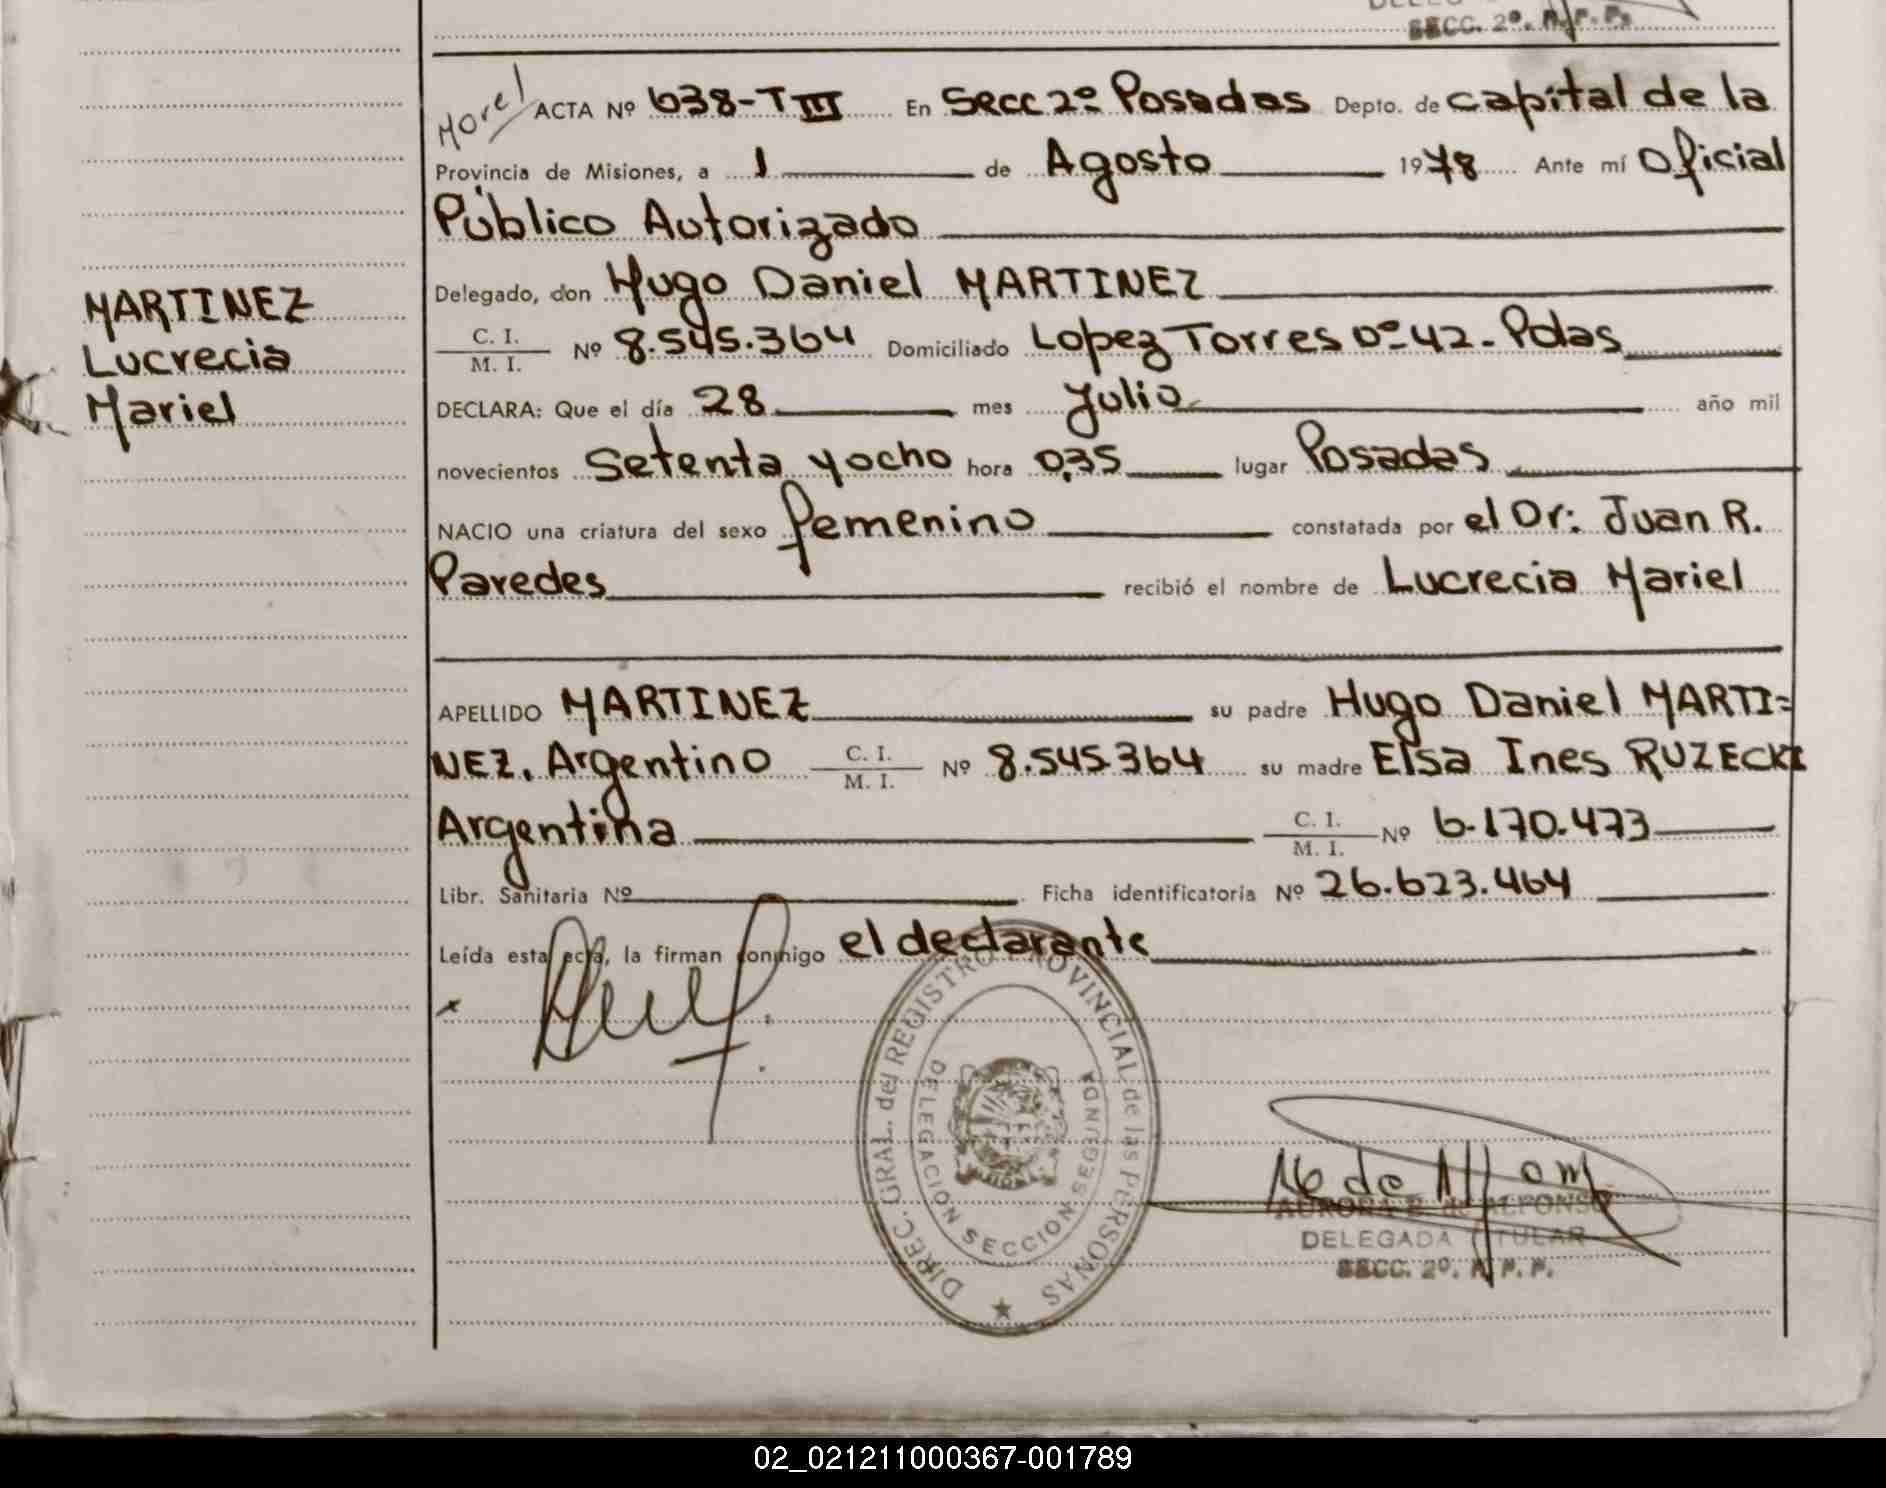 SECC. 2º. R.P.P.
Morel ACTA Nº 638-T III En Secc 2º Posadas Depto. de capital de la
Provincia de Misiones, a 1 de Agosto 1978 Ante mí Oficial
Público Autorizado
Delegado, don Hugo Daniel MARTINEZ
MARTINEZ
Lucrecia
Mariel
C. I.
M. I. Nº 8.545.364 Domiciliado Lopez Torres nº 42 - Pdas
DECLARA: Que el día 28 mes Julio año mil
novecientos Setenta y ocho hora 0,35 lugar Posadas
NACIO una criatura del sexo femenino constatada por el Dr: Juan R.
Paredes recibió el nombre de Lucrecia Mariel
APELLIDO MARTINEZ su padre Hugo Daniel MARTI=
NEZ. Argentino C. I. M. I. Nº 8.545.364 su madre Elsa Ines RUZECKI
Argentina C. I. M. I. Nº 6.170.473
Libr. Sanitaria Nº Ficha identificatoria Nº 26.623.464
Leída esta acta, la firman conmigo el declarante
DIREC. GRAL. del REGISTRO PROVINCIAL de las PERSONAS
DELEGACION SECCION SEGUNDA
AURORA B. de ALFONSO
DELEGADA TITULAR
SECC. 2º. R.P.P.
02_021211000367-001789